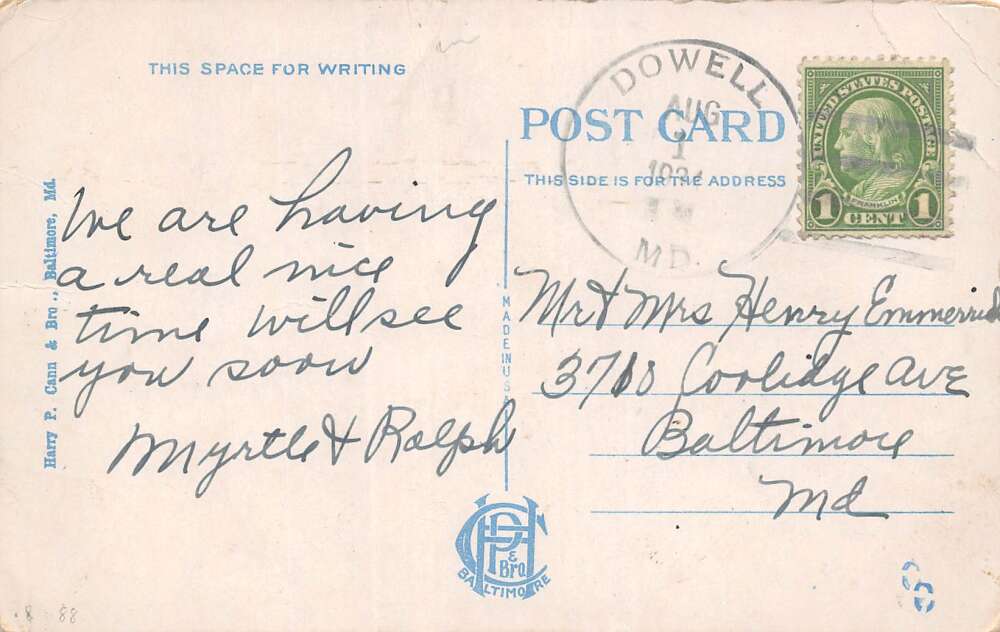 THIS SPACE FOR WRITING
We are having
a real nice
time will see
you soon
Myrtle & Ralph
Harry P. Cann & Bro., Baltimore, Md.
MADE IN USA
DOWELL
AUG
1
MD.
UNITED STATES POSTAGE
FRANKLIN
1 CENT 1
POST CARD
THIS SIDE IS FOR THE ADDRESS
Mr & Mrs Henry Emmerich
3710 Coolidge Ave
Baltimore
Md
HPC & Bro
BALTIMORE
88